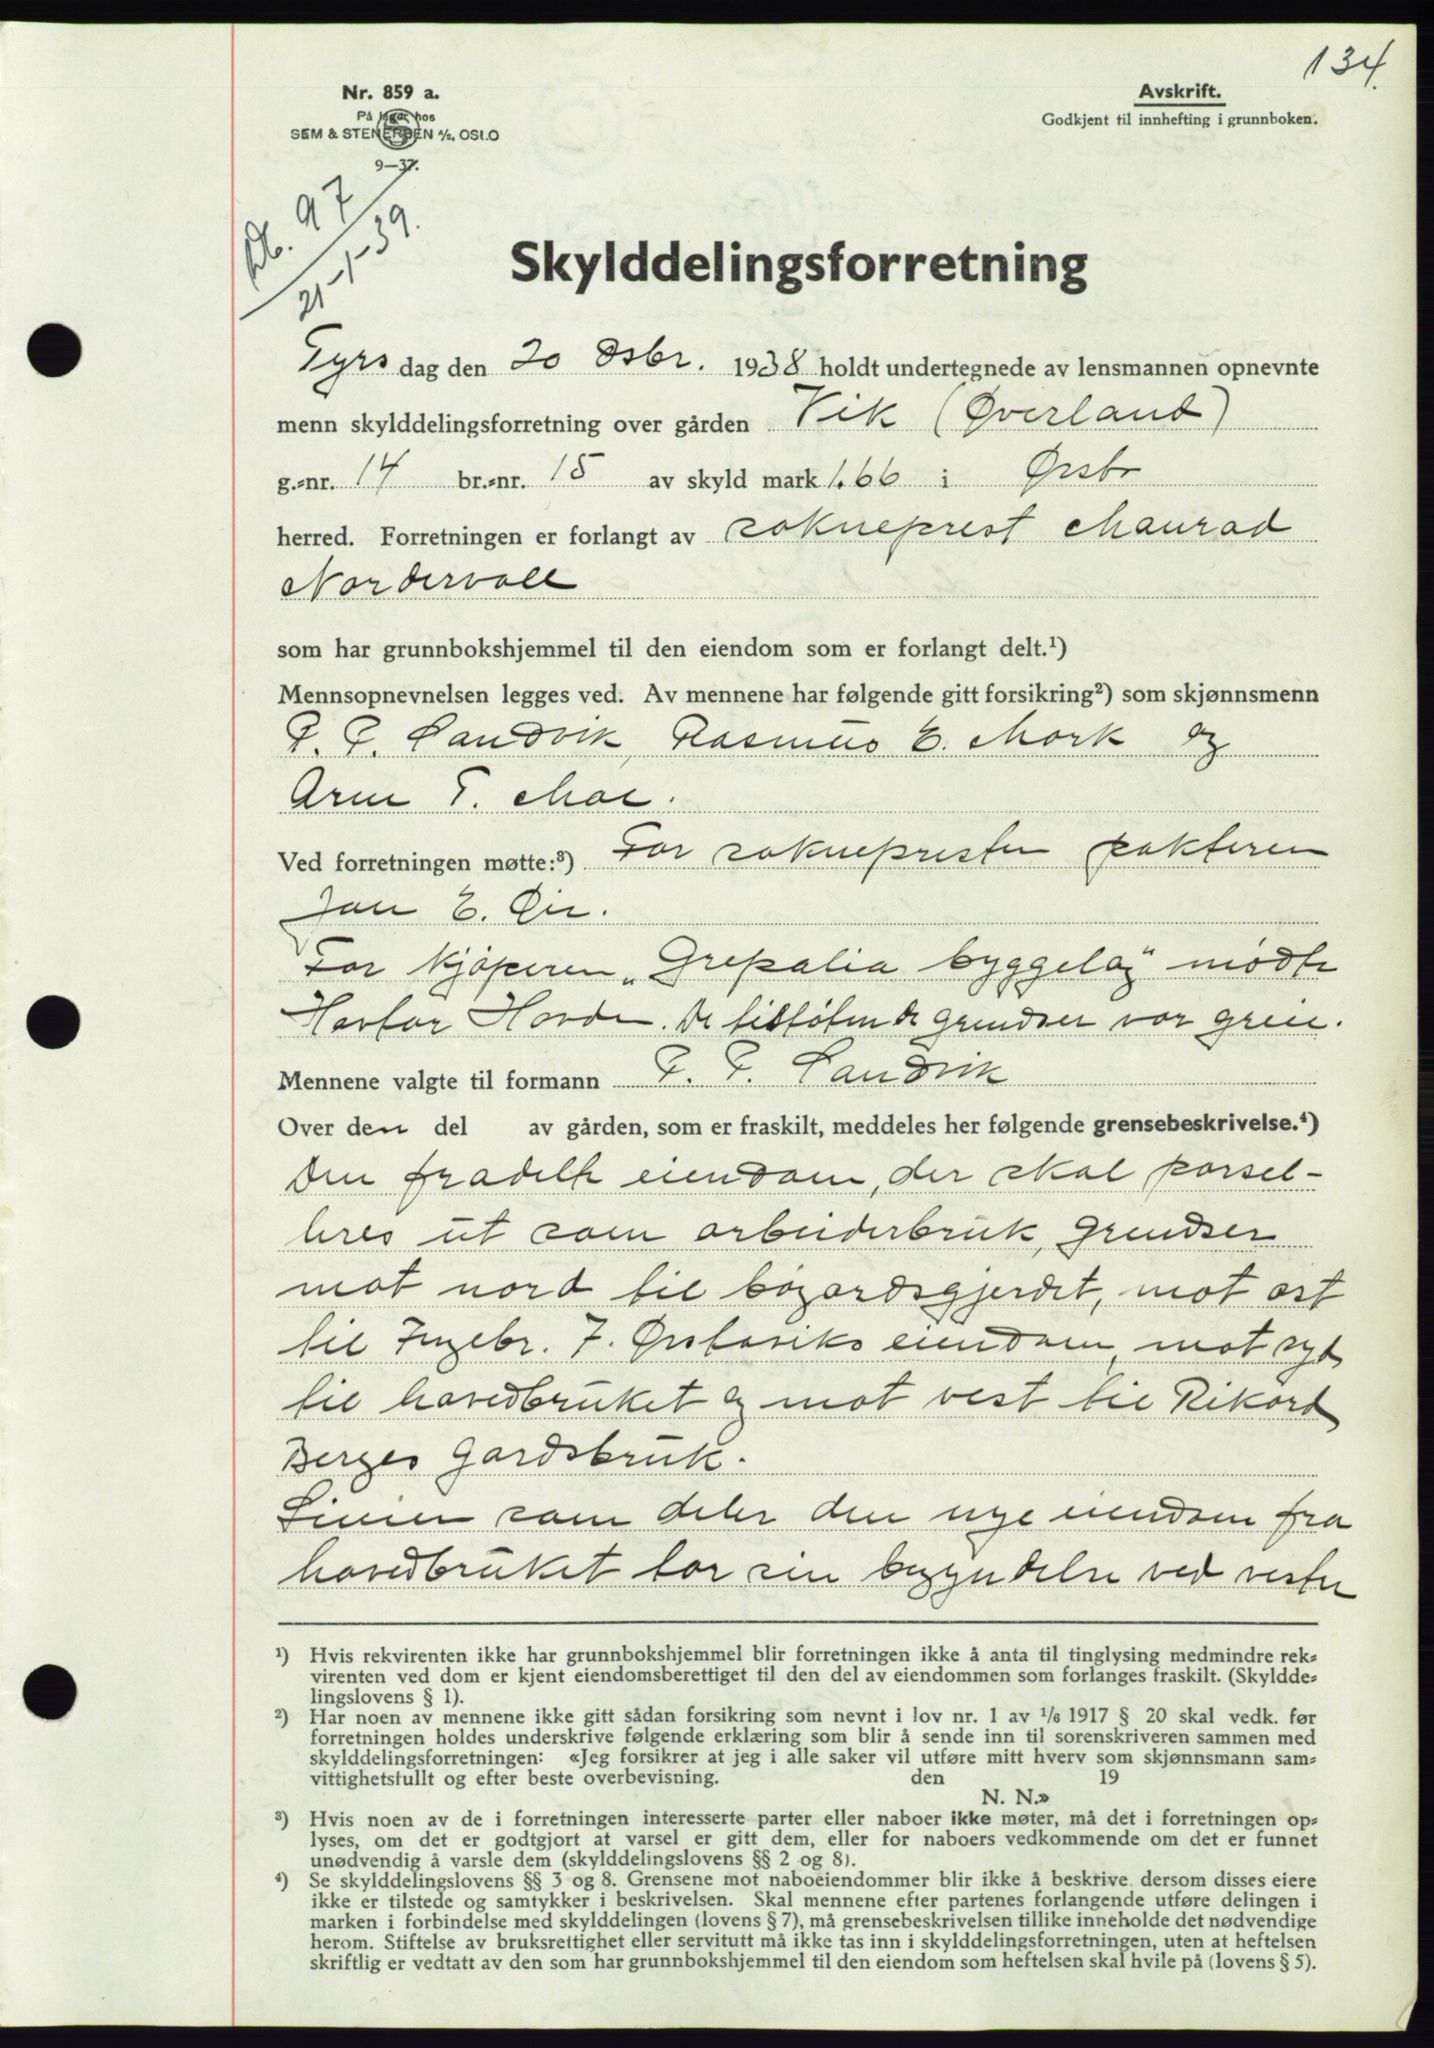 134.
Nr. 859 a.
På lager hos
SEM & STENERSEN A/S, OSLO
9—37.
Avskrift.
Godkjent til innhefting i grunnboken.
Db. 97
21-1-39.
Skylddelingsforretning
Tyrs dag den 20 dsbr. 1938 holdt undertegnede av lensmannen opnevnte
menn skylddelingsforretning over gården Vik (Øverland)
g.-nr. 14 br.-nr. 15 av skyld mark 1.66 i Ørsta
herred. Forretningen er forlangt av sokneprest Maurad
Nordervall
som har grunnbokshjemmel til den eiendom som er forlangt delt.¹)
Mennsopnevnelsen legges ved. Av mennene har følgende gitt forsikring²) som skjønnsmenn
P. P. Sandvik, Rasmus E. Mork og
Arne T. Moe.
Ved forretningen møtte:³) For soknepresten pakteren
Jon E. Øie.
For kjøperen „Grepalia byggelag" mødte
Havtor Hovde. De tilstøtende grendser var greie.
Mennene valgte til formann P. P. Sandvik
Over den del av gården, som er fraskilt, meddeles her følgende grensebeskrivelse.⁴)
Den fradelte eiendom, der skal parsel-
leres ut som arbeiderbruk, grendser
mot nord til bøgardsgjerdet, mot øst
til Ingebr. J. Ørstaviks eiendom, mot syd
til hovedbruket og mot vest til Rikard
Berges gardsbruk.
Linien som deler den nye eiendom fra
hovedbruket tar sin begyndelse ved vestre
¹) Hvis rekvirenten ikke har grunnbokshjemmel blir forretningen ikke å anta til tinglysing medmindre rek-
virenten ved dom er kjent eiendomsberettiget til den del av eiendommen som forlanges fraskilt. (Skyldde-
lingslovens § 1).
²) Har noen av mennene ikke gitt sådan forsikring som nevnt i lov nr. 1 av 1/6 1917 § 20 skal vedk. før
forretningen holdes underskrive følgende erklæring som blir å sende inn til sorenskriveren sammen med
skylddelingsforretningen: «Jeg forsikrer at jeg i alle saker vil utføre mitt hverv som skjønnsmann sam-
vittighetsfullt og efter beste overbevisning. den 19
N. N.»
³) Hvis noen av de i forretningen interesserte parter eller naboer ikke møter, må det i forretningen op-
lyses, om det er godtgjort at varsel er gitt dem, eller for naboers vedkommende om det er funnet
unødvendig å varsle dem (skylddelingslovens §§ 2 og 8).
⁴) Se skylddelingslovens §§ 3 og 8. Grensene mot naboeiendommer blir ikke å beskrive, dersom disses eiere
ikke er tilstede og samtykker i beskrivelsen. Skal mennene efter partenes forlangende utføre delingen i
marken i forbindelse med skylddelingen (lovens § 7), må grensebeskrivelsen tillike inneholde det nødvendige
herom. Stiftelse av bruksrettighet eller servitutt må ikke tas inn i skylddelingsforretningen, uten at heftelsen
skriftlig er vedtatt av den som har grunnbokshjemmel til den eiendom som heftelsen skal hvile på (lovens § 5).